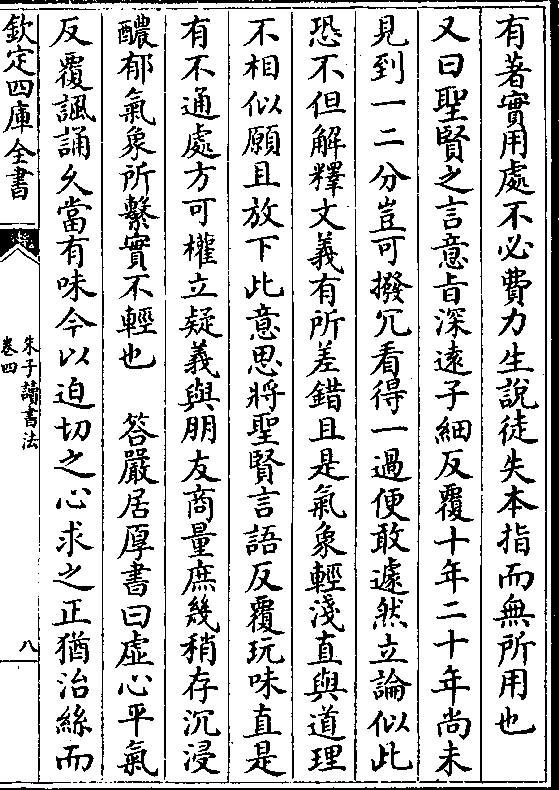 有著實用處不必費力生說徒失本指而無所用也
又曰聖賢之言意旨深遠子細反覆十年二十年尚未
見到一二分豈可撥冗看得一過便敢遽然立論似此
恐不但解釋文義有所差錯且是氣象輕淺直與道理
不相似願且放下此意思將聖賢言語反覆玩味直是
有不通處方可權立疑義與朋友商量庶幾稍存沉浸
醲郁氣象所繫實不輕也　答嚴居厚書曰虛心平氣
反覆諷誦久當有味今以迫切之心求之正猶治絲而
欽定四庫全書
朱子讀書法
卷四
八